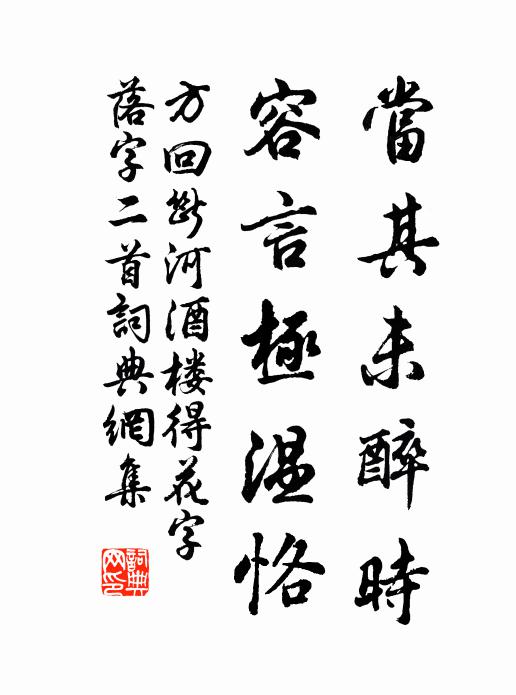 當其未醉時
容言極温恪
方回斷河酒楼得花字
落字二首詞典網集
詞典
网印